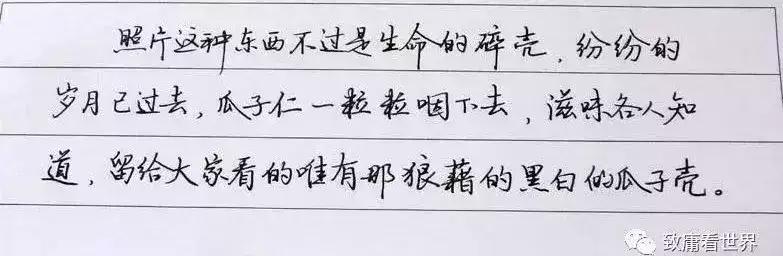 照片这种东西不过是生命的碎壳，纷纷的
岁月已过去，瓜子仁一粒粒咽下去，滋味各人知
道，留给大家看的唯有那狼藉的黑白的瓜子壳。
致庸看世界